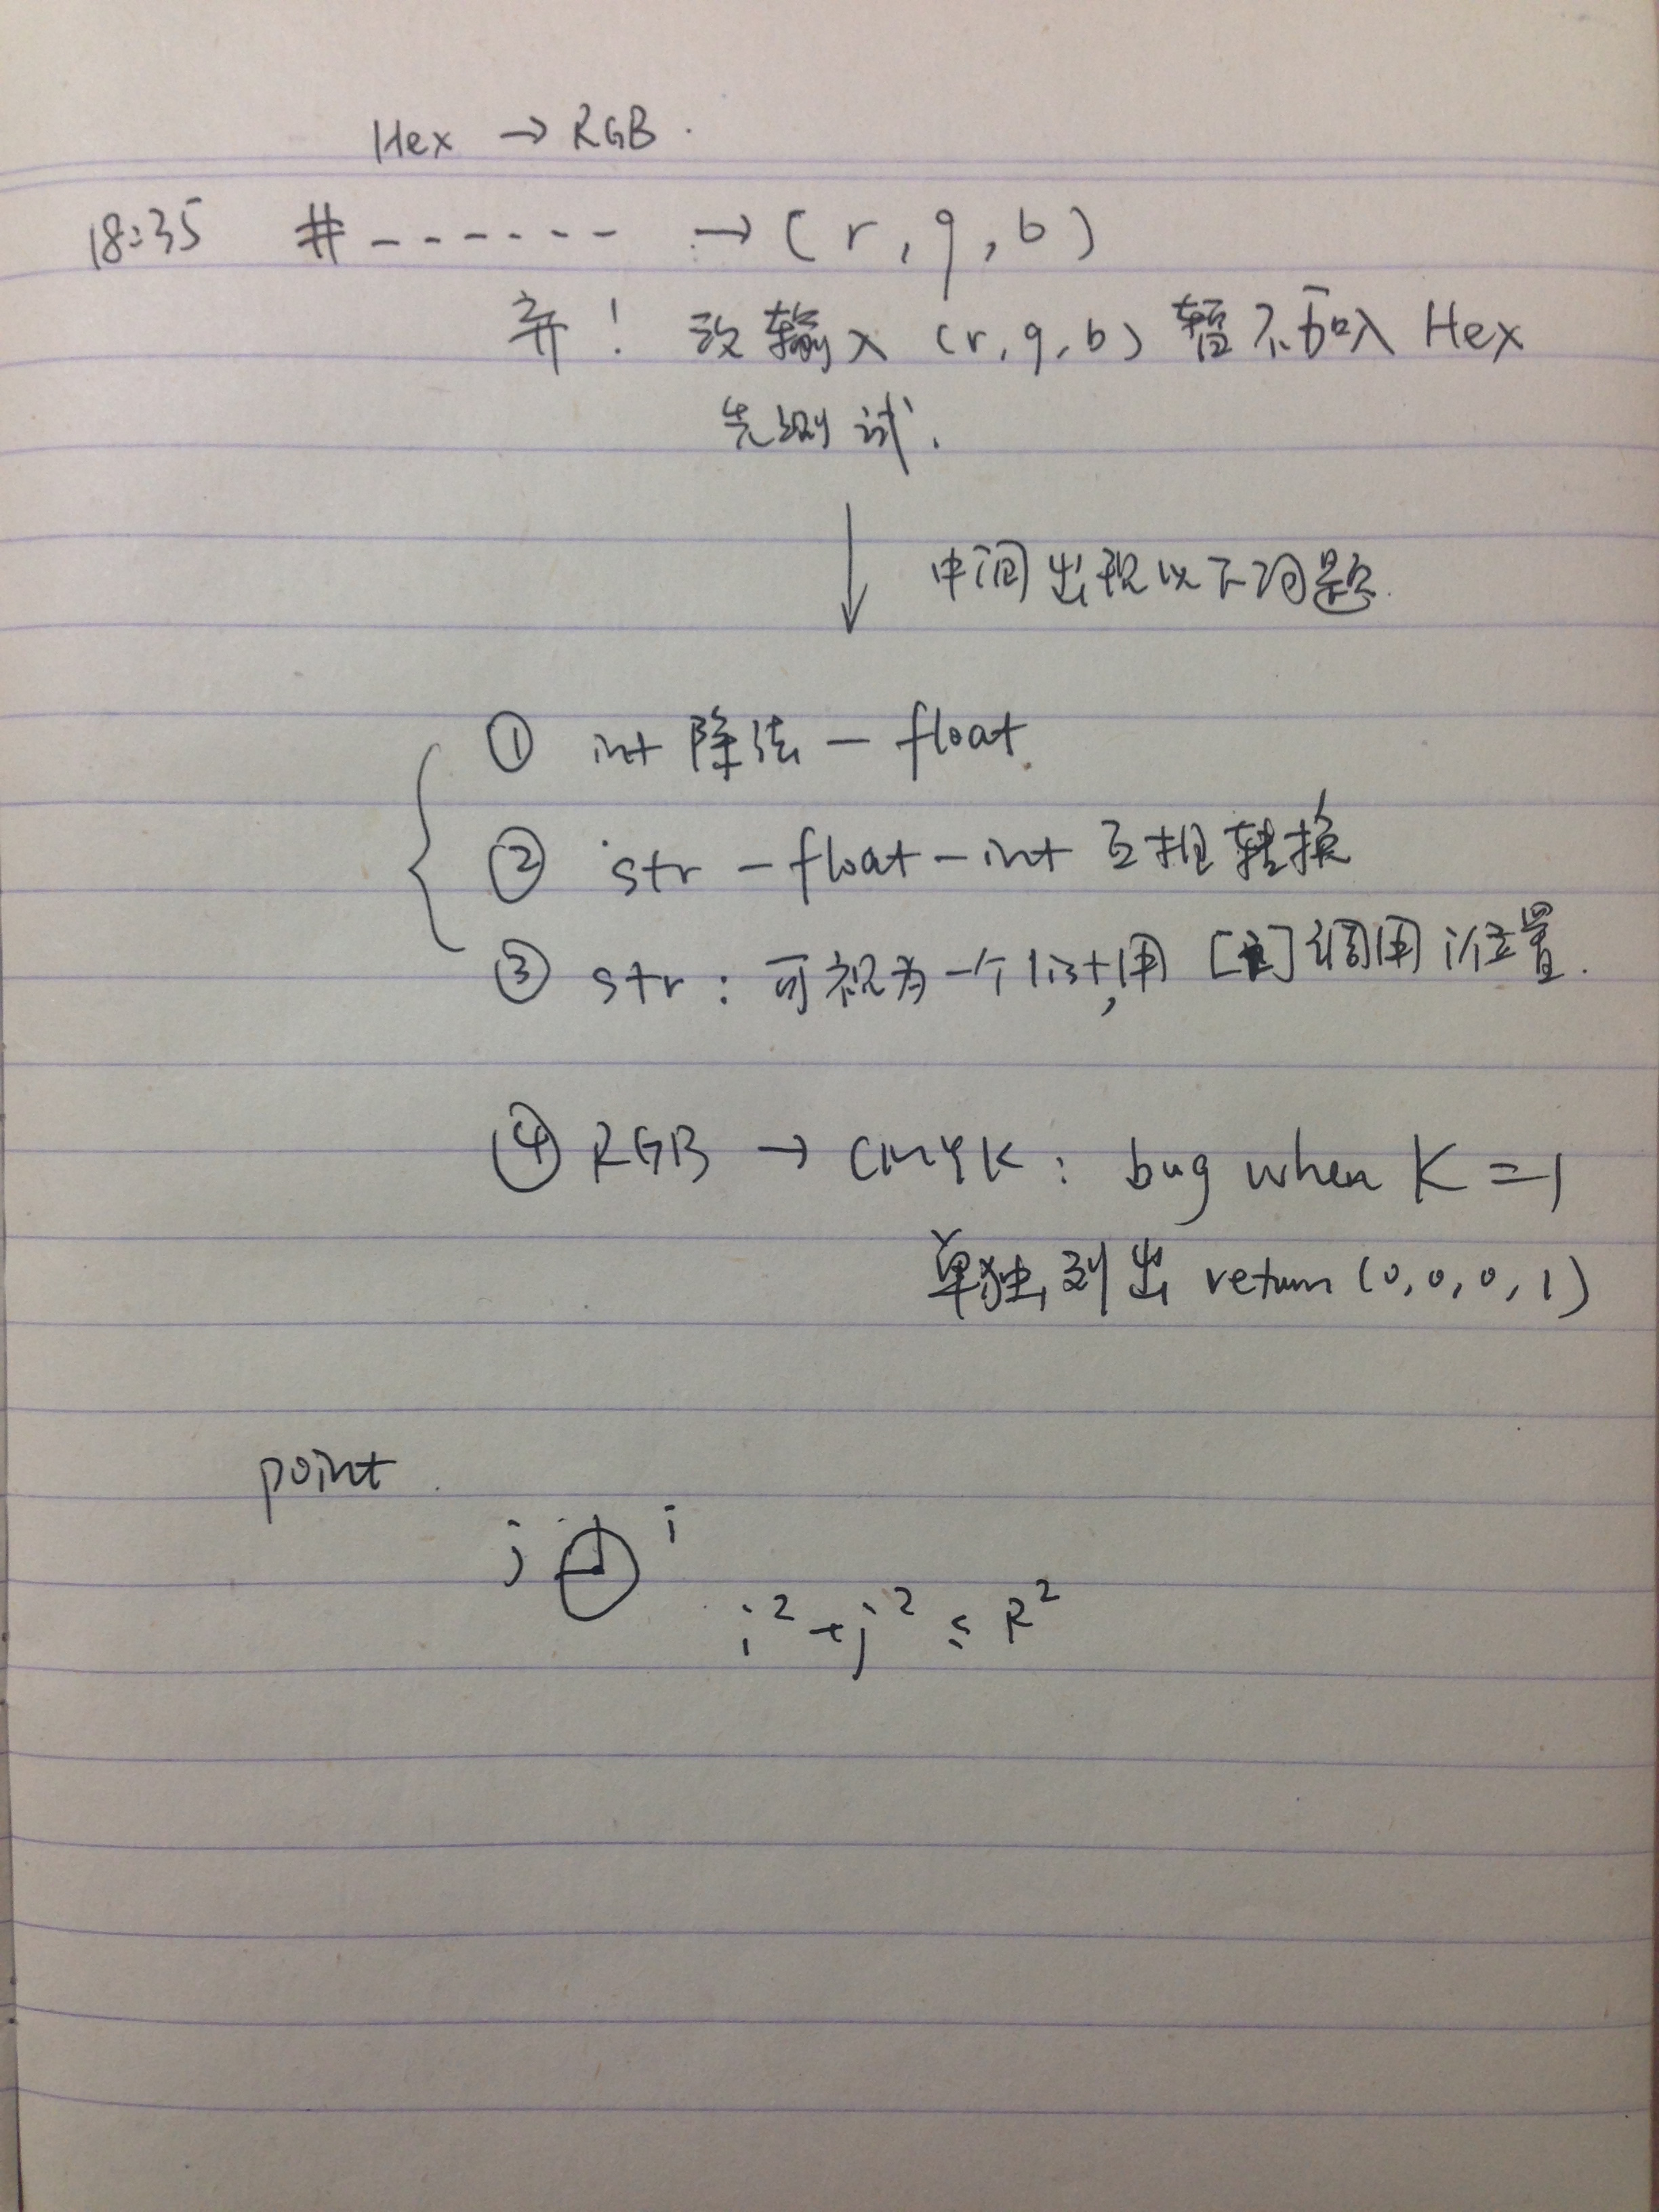 Hex → RGB.
18:35 # _ _ _ _ _ _ → (r, g, b)
弃! 改输入 (r, g, b) 暂不加入 Hex
先测试.
中间出现以下问题.
① int 除法 — float.
② str — float — int 互相转换
③ str: 可视为一个list,用 [i] 调用 i位置.
④ RGB → CMYK: bug when K = 1
单独列出 return (0, 0, 0, 1)
point.
j i
i² + j² ≤ R²